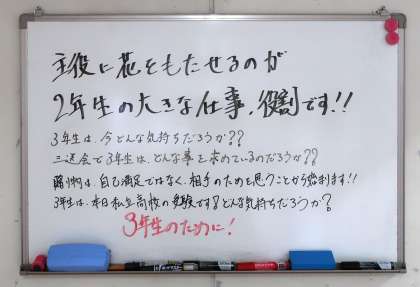 主役に花をもたせるのが
2年生の大きな仕事、役割です!!
3年生は、今どんな気持ちだろうか??
三送会で3年生は、どんな事を求めているのだろうか??
は、自己満足ではなく、相手のためを思うことから始まります!!
3年生は、本日私立高校の受験です?どんな気持ちだろうか?
3年生のために!